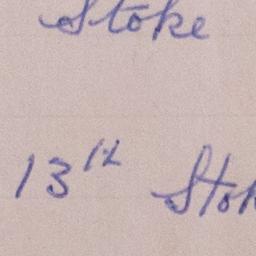 Stoke
13th Stok